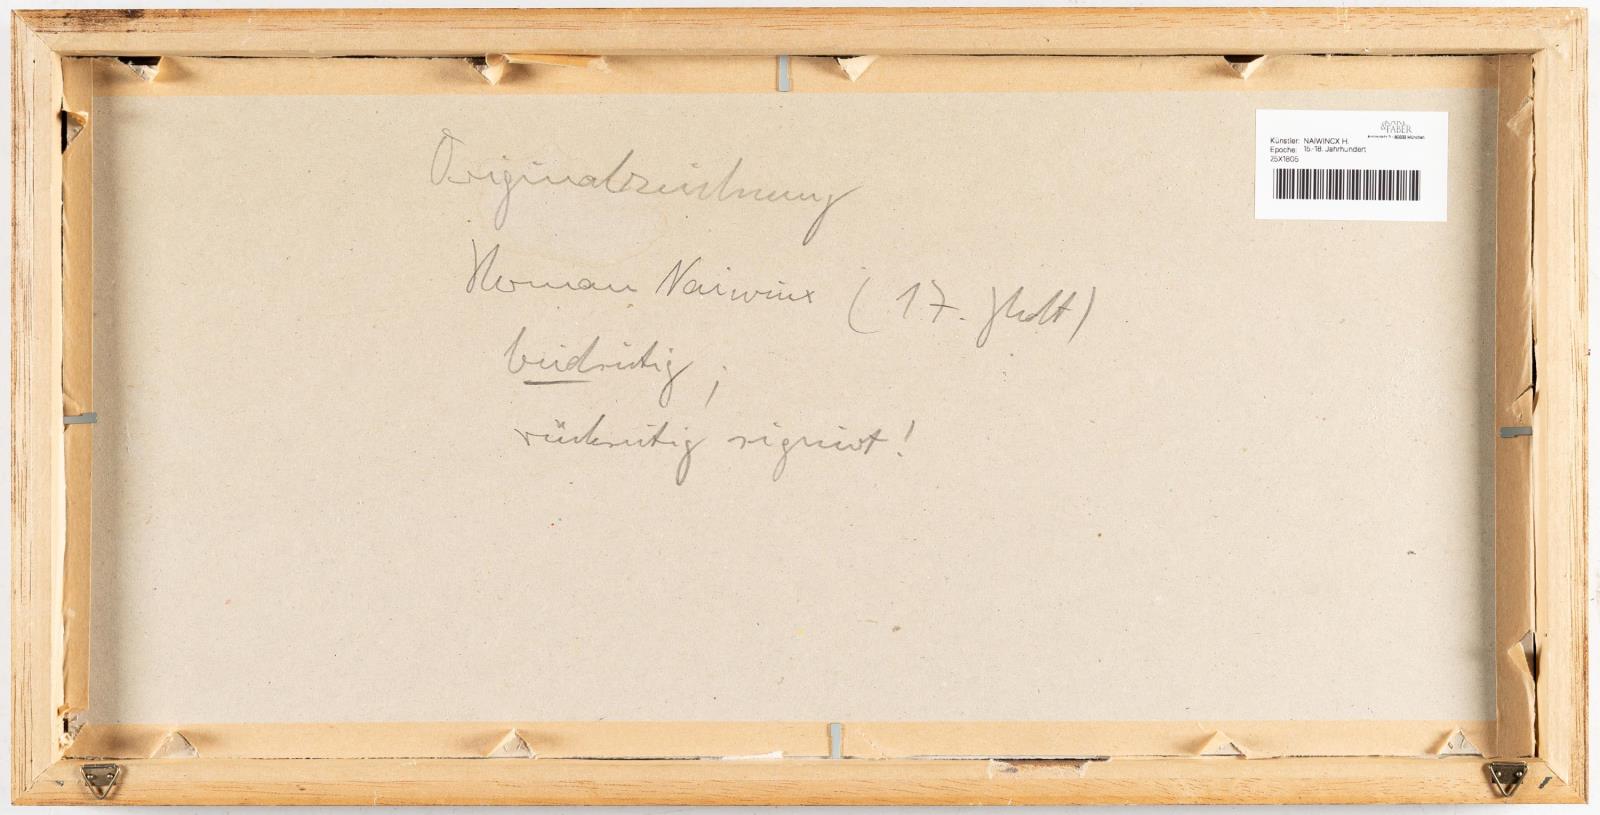 Originalzeichnung
Herman Naiwinx (17. Jhdt)
beidseitig;
rückseitig signiert!
& FABER
Künstler: NAIWINCX H.
Epoche: 15.-18. Jahrhundert
25X1805